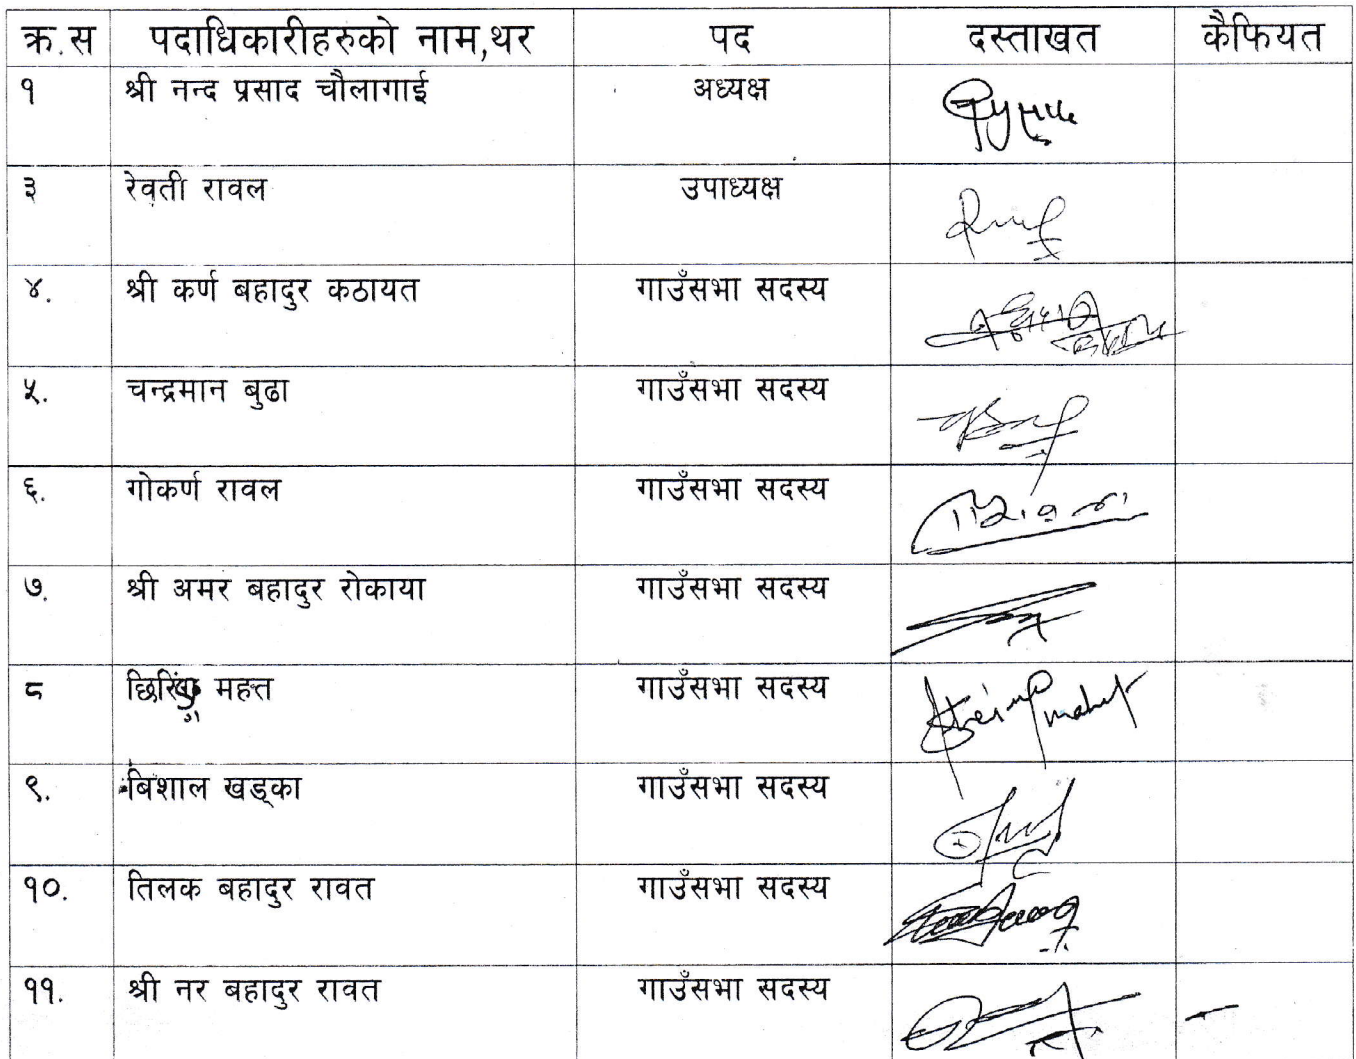 क्र.स पदाधिकारीहरुको नाम,थर पद दस्ताखत कैफियत
१ श्री नन्द प्रसाद चौलागाई अध्यक्ष
३ रेवती रावल उपाध्यक्ष
४. श्री कर्ण बहादुर कठायत गाउँसभा सदस्य
५. चन्द्रमान बुढा गाउँसभा सदस्य
६. गोकर्ण रावल गाउँसभा सदस्य
७. श्री अमर बहादुर रोकाया गाउँसभा सदस्य
८ महत गाउँसभा सदस्य
९. बिशाल खड्का गाउँसभा सदस्य
१०. तिलक बहादुर रावत गाउँसभा सदस्य
११. श्री नर बहादुर रावत गाउँसभा सदस्य